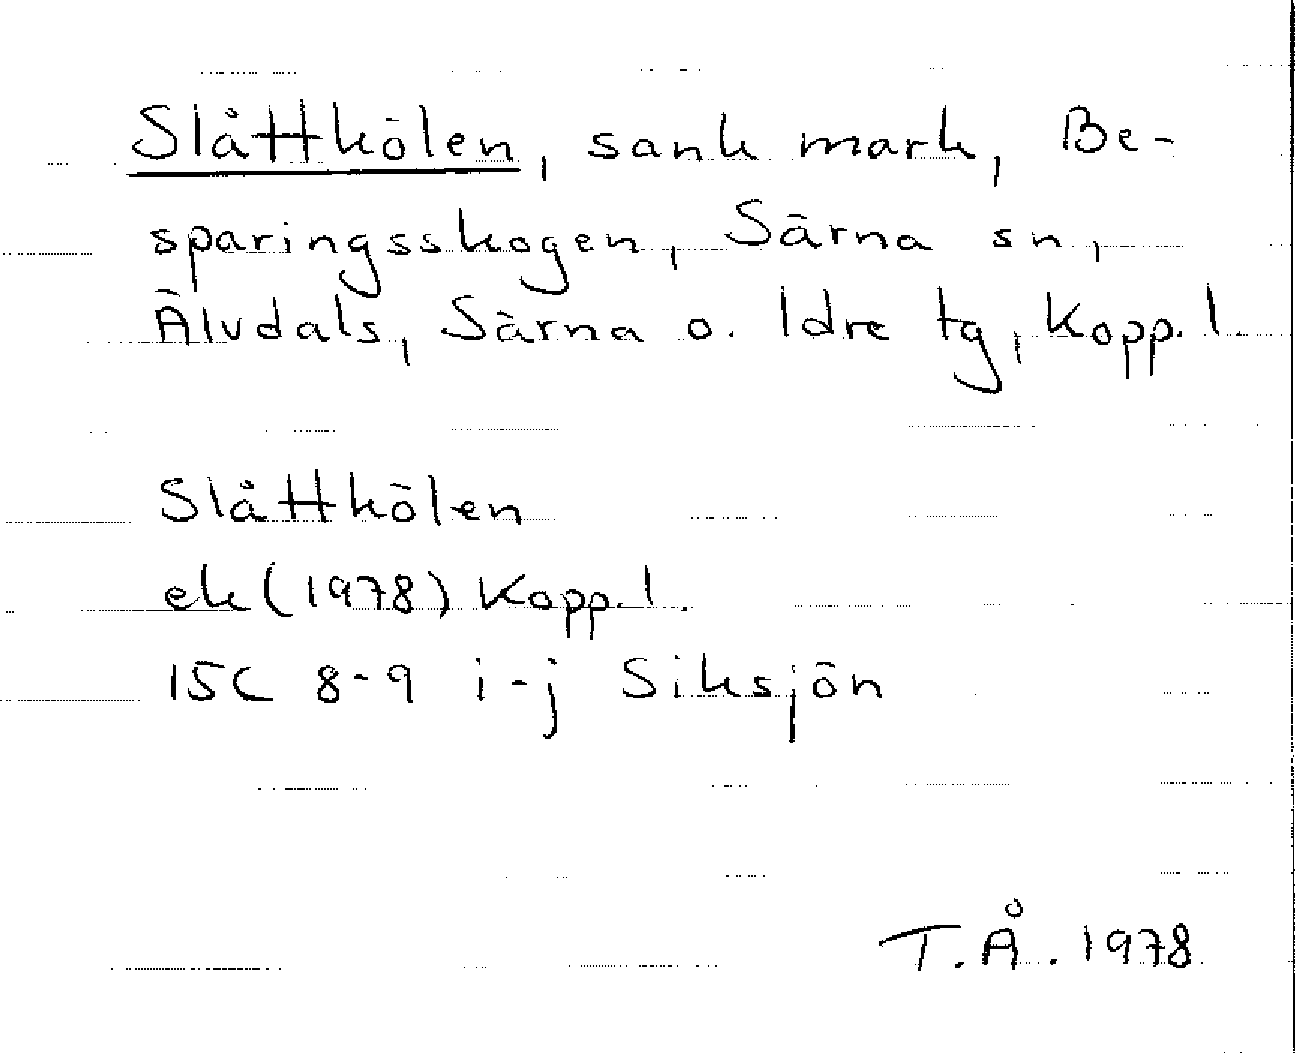 Slåttkölen, sank mark, Be-
sparingsskogen, Särna sn,
Älvdals, Särna o. Idre tg, Kopp. l
Slåttkölen
ek (1978) Kopp. l.
15C 8-9 i-j Siksjön
T.Å. 1978